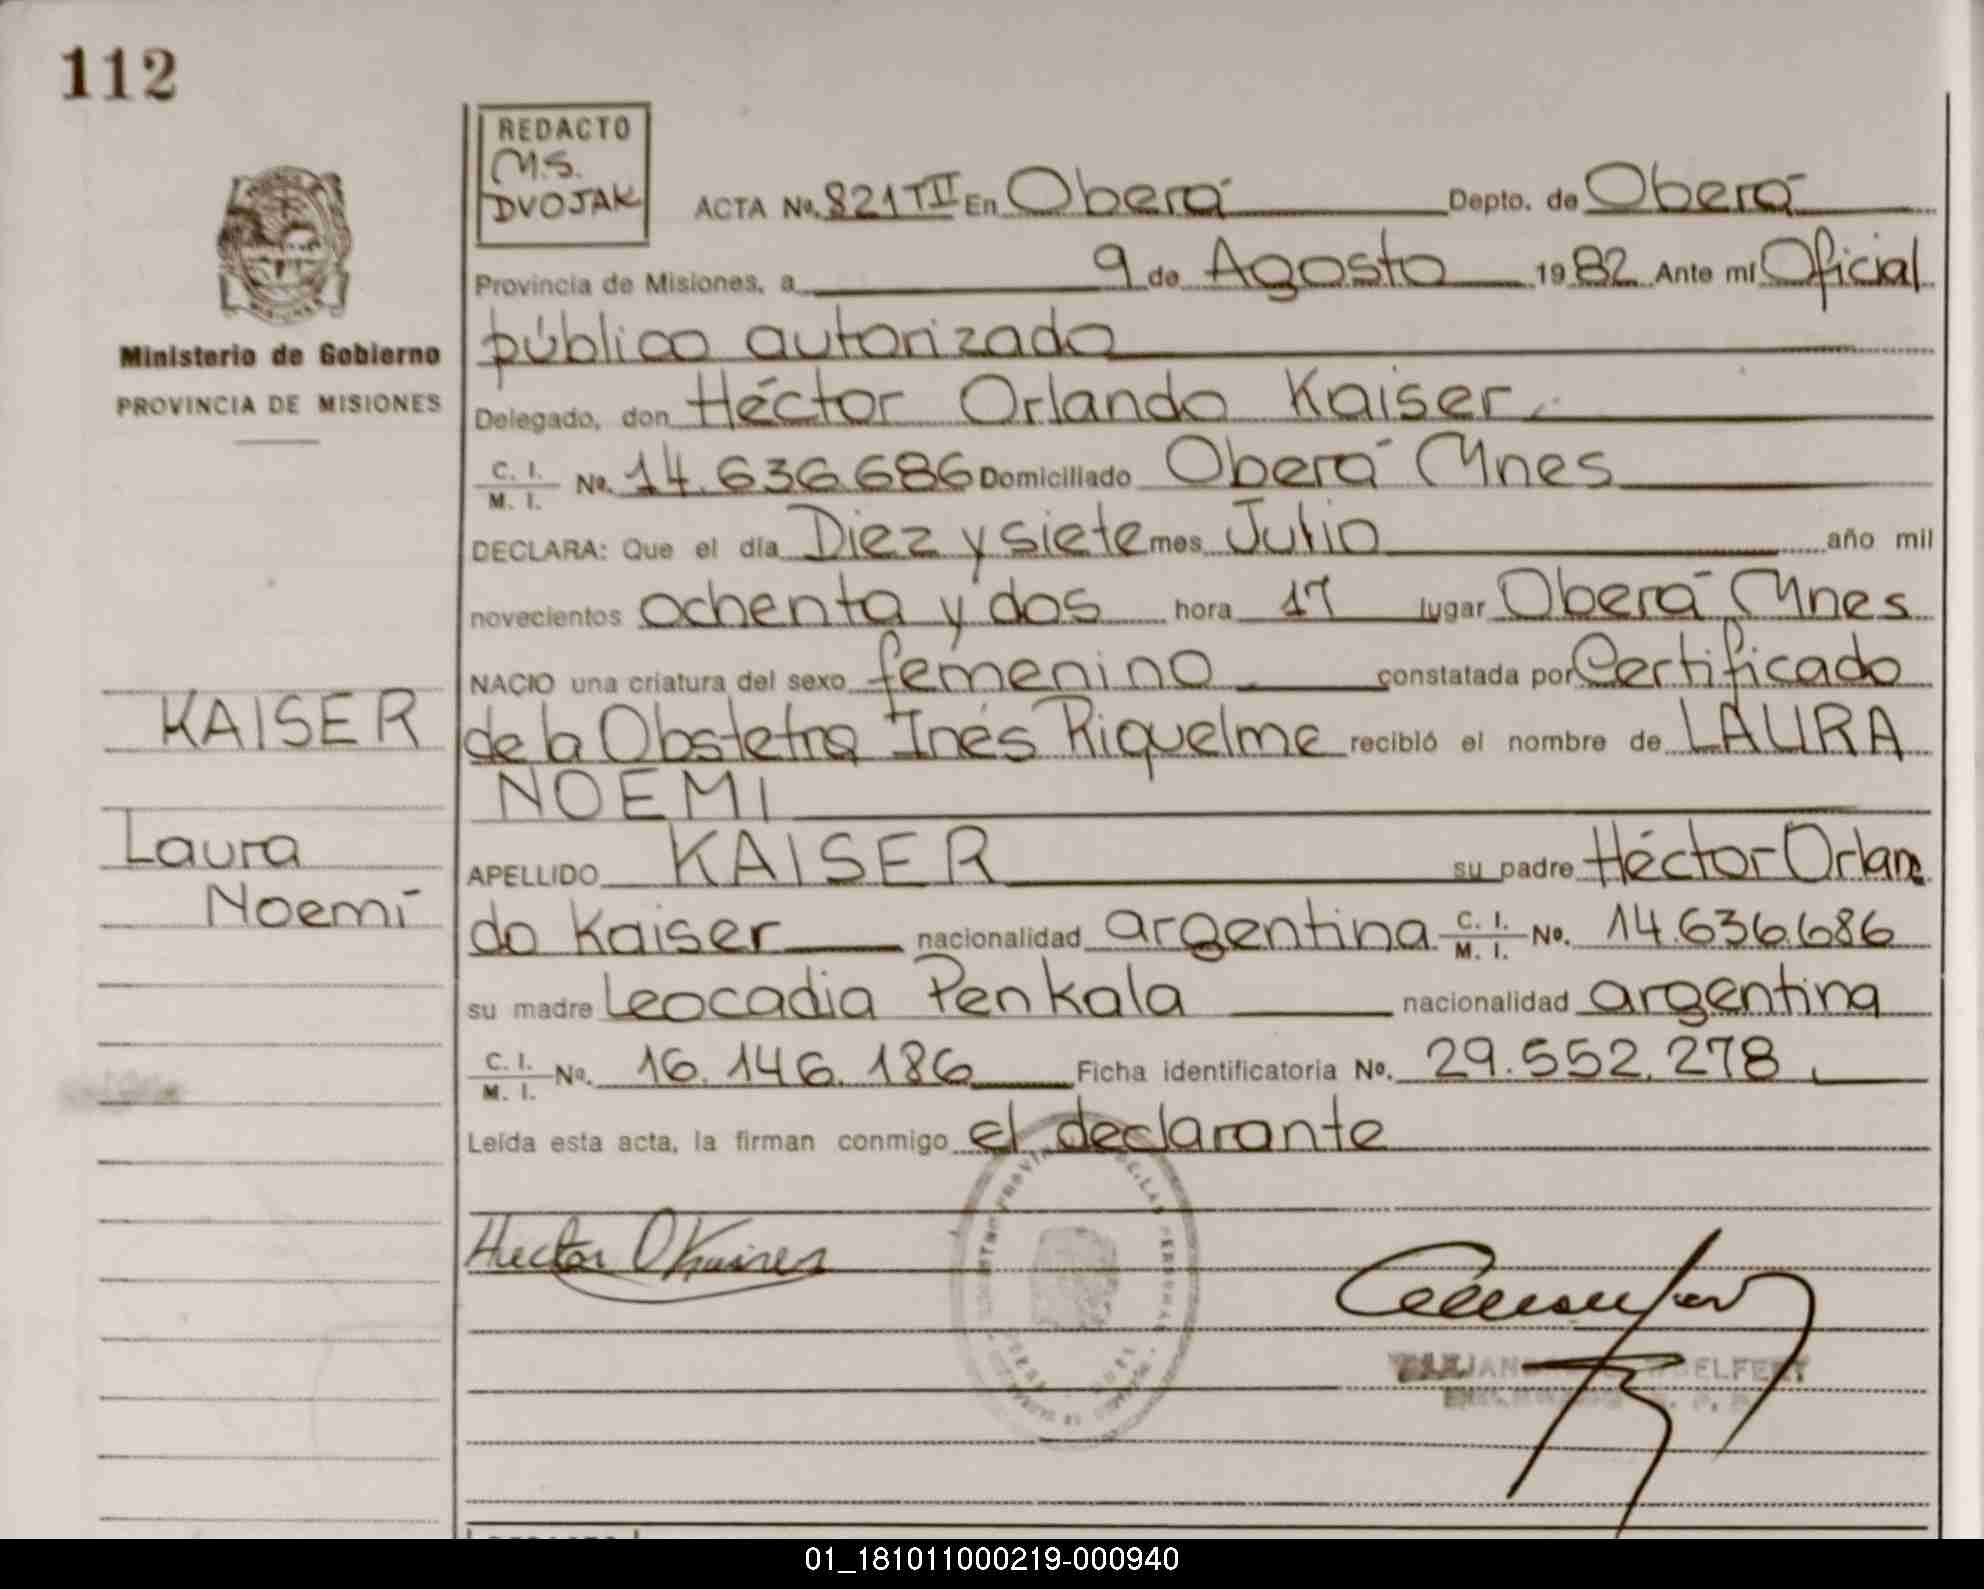 112
REDACTO
M.S.
DVOJAK
ACTA No. 821 TII En Oberá Depto. de Oberá
Provincia de Misiones, a 9 de Agosto 1982 Ante mí Oficial
público autorizado
Ministerio de Gobierno
PROVINCIA DE MISIONES
Delegado, don Héctor Orlando Kaiser
C. I.
M. I. No. 14.636.686 Domiciliado Oberá Mnes
DECLARA: Que el día Diez y siete mes Julio año mil
novecientos ochenta y dos hora 17 lugar Oberá Mnes
NACIO una criatura del sexo femenino constatada por Certificado
KAISER
de la Obstetra Inés Riquelme recibió el nombre de LAURA
NOEMI
Laura
Noemí
APELLIDO KAISER su padre Héctor Orlan
do Kaiser nacionalidad argentina C. I. M. I. No. 14.636.686
su madre Leocadia Penkala nacionalidad argentina
C. I.
M. I. No. 16.146.186 Ficha identificatoria No. 29.552.278
Leída esta acta, la firman conmigo el declarante
Hector O Kaiser
01_181011000219-000940